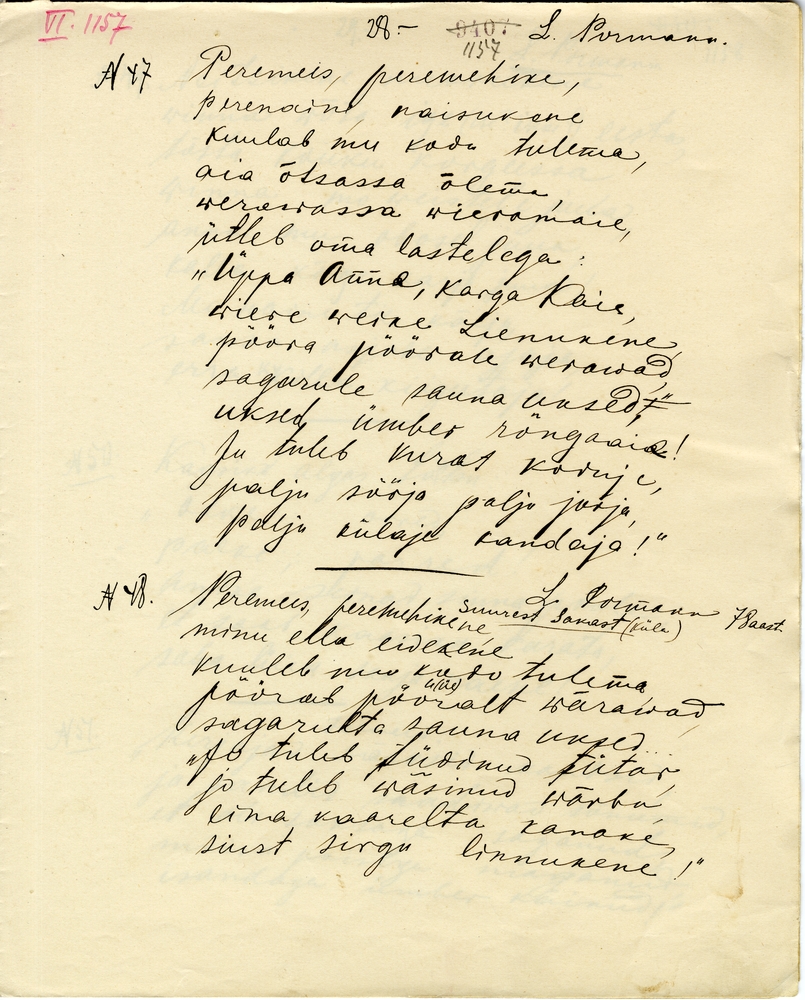 VI. 1157
28.–
9407
1157
L. Pormann.
N 47
Peremees, peremehike,
perenaine, naisukene
kuulab mu kodu tulema,
aia õtsassa õlema,
werawassa wieremaie,
ütleb oma lastelega:
„Üppa Anna, karga Kaie,
wiere weike Lienukene,
pööra pöörale werawad,
sagarule sauna uksed,
uksed ümber rõngaaie!
Ju tuleb kurat koduje,
palju sööja palju jooja,
palju külaje kandaja!“
N 48.
L. Pormann 78 aast.
Suurest Sakast (küla)
Peremees, peremehikene,
minu ella eidekene
kuuleb mu kodo tulema,
pöörab pööralt wärawad,
sagarulta sauna uksed
„Jo tuleb tüdinud tütär,
jo tuleb wäsinud wärbu,
eina kaarelta kanake,
siust sirgu linnukene!“